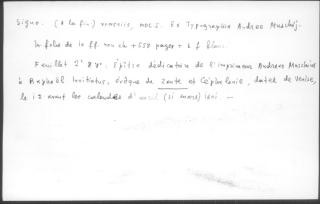 Signe. (à la fin) Venetiis, MDCI. Ex Typographia Andreae Muschij.
In folio de 10 ff. non ch + 558 pages + 1 f blanc.
Feuillet 2° r° v°. Epître dédicatoire de l'imprimeur Andreas Muschius
à Raphaël Inviziatus, évêque de Zante et Céphalonie, datée de Venise,
le 12 avant les calendes d'avril (21 mars) 1601. —